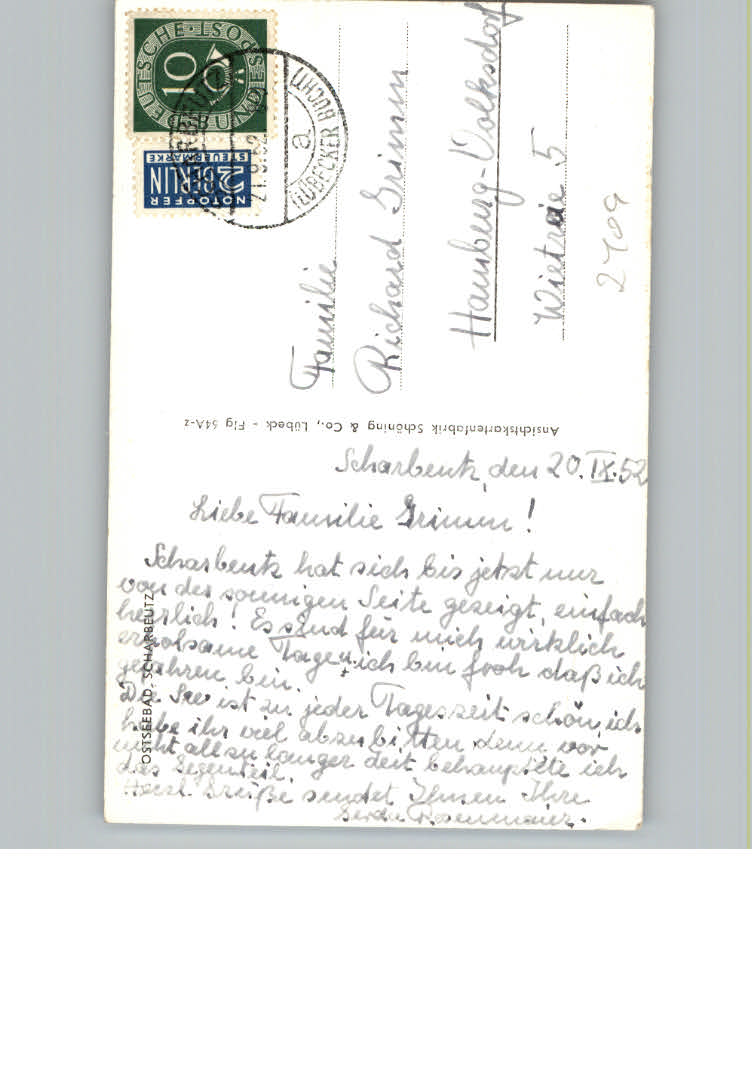 DEUTSCHE BUNDESPOST
10
NOTOPFER
2 BERLIN
STEUERMARKE
SCHARBEUTZ
21.9.52
a
LÜBECKER BUCHT
Familie
Richard Grimm
Hamburg-Volksdorf
Wietreie 5
2409
Ansichtskartenfabrik Schöning & Co., Lübeck - Flg 64A-z
OSTSEEBAD SCHARBEUTZ
Scharbeutz, den 20.IX.52
Liebe Familie Grimm!
Scharbeutz hat sich bis jetzt nur
von der sonnigen Seite gezeigt, einfach
herrlich! Es sind für mich wirklich
erholsame Tage u. ich bin froh daß ich
gefahren bin.
Die See ist zu jeder Tageszeit schön, ich
habe ihr viel abzubitten denn vor
nicht allzu langer Zeit behauptete ich
das Gegenteil.
Herzl. Grüße sendet Ihnen Ihre
Gerda Rosenmaier.